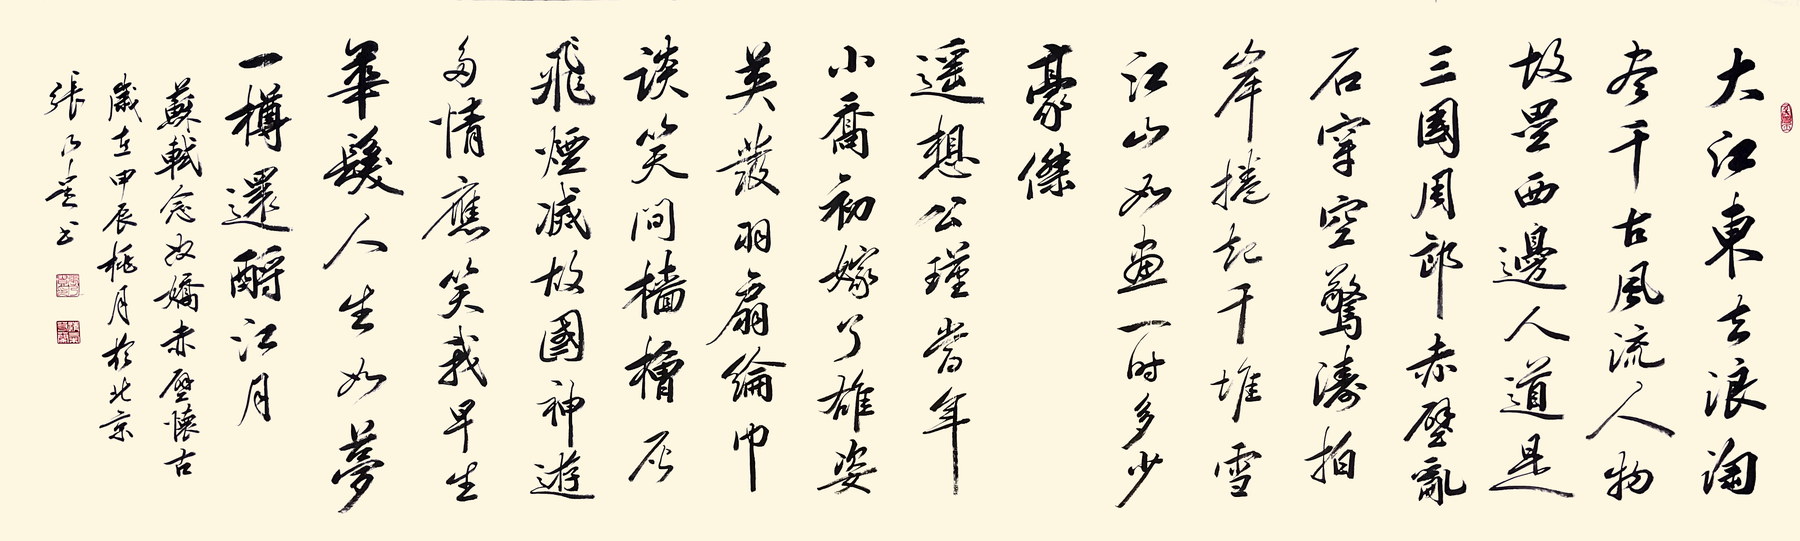 大江東去浪淘
尽千古風流人物
故壘西邊人道是
三國周郎赤壁亂
石穿空驚濤拍
岸捲起千堆雪
江山如畫一时多少
豪傑
遥想公瑾當年
小喬初嫁了雄姿
英發羽扇綸巾
談笑间檣櫓灰
飛煙滅故國神遊
多情應笑我早生
華髮人生如夢
一樽還酹江月
蘇軾念奴嬌赤壁懷古
歲在甲辰桃月於北京
張乃书